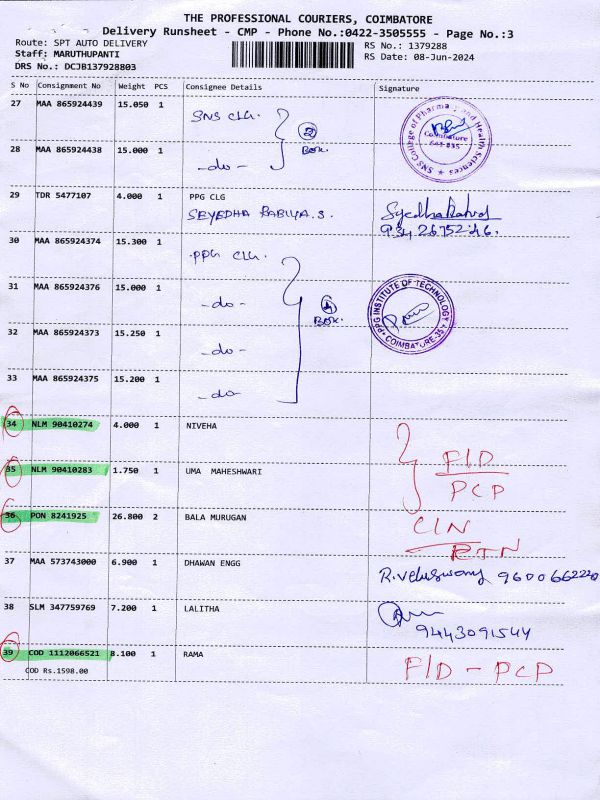 THE PROFESSIONAL COURIERS, COIMBATORE
Delivery Runsheet - CMP - Phone No.:0422-3505555 - Page No.:3
Route: SPT AUTO DELIVERY
RS No.: 1379288
Staff: MARUTHUPANTI
RS Date: 08-Jun-2024
DRS No.: DCJB137928803
S No Consignment No Weight PCS Consignee Details Signature
27 MAA 865924439 15.050 1 SNS CLG.
2 Box.
SNS College of Pharmacy and Health Sciences
Coimbatore
641 035
28 MAA 865924438 15.000 1 -do-
29 TDR 5477107 4.000 1 PPG CLG
SEYEDHA RABIYA.S.
30 MAA 865924374 15.300 1 PPG CLG.
31 MAA 865924376 15.000 1 -do-
4 Box.
PPG INSTITUTE OF TECHNOLOGY
COIMBATORE-35
32 MAA 865924373 15.250 1 -do-
33 MAA 865924375 15.200 1 -do-
34 NLM 90410274 4.000 1 NIVEHA
F/D
35 NLM 90410283 1.750 1 UMA MAHESHWARI
PCP
36 PON 8241925 26.800 2 BALA MURUGAN CIN
RTN
37 MAA 573743000 6.900 1 DHAWAN ENGG R.Veluswamy 9600662220
38 SLM 347759769 7.200 1 LALITHA
9443091544
39 COD 1112066521 8.100 1 RAMA F/D - PCP
COD Rs.1598.00